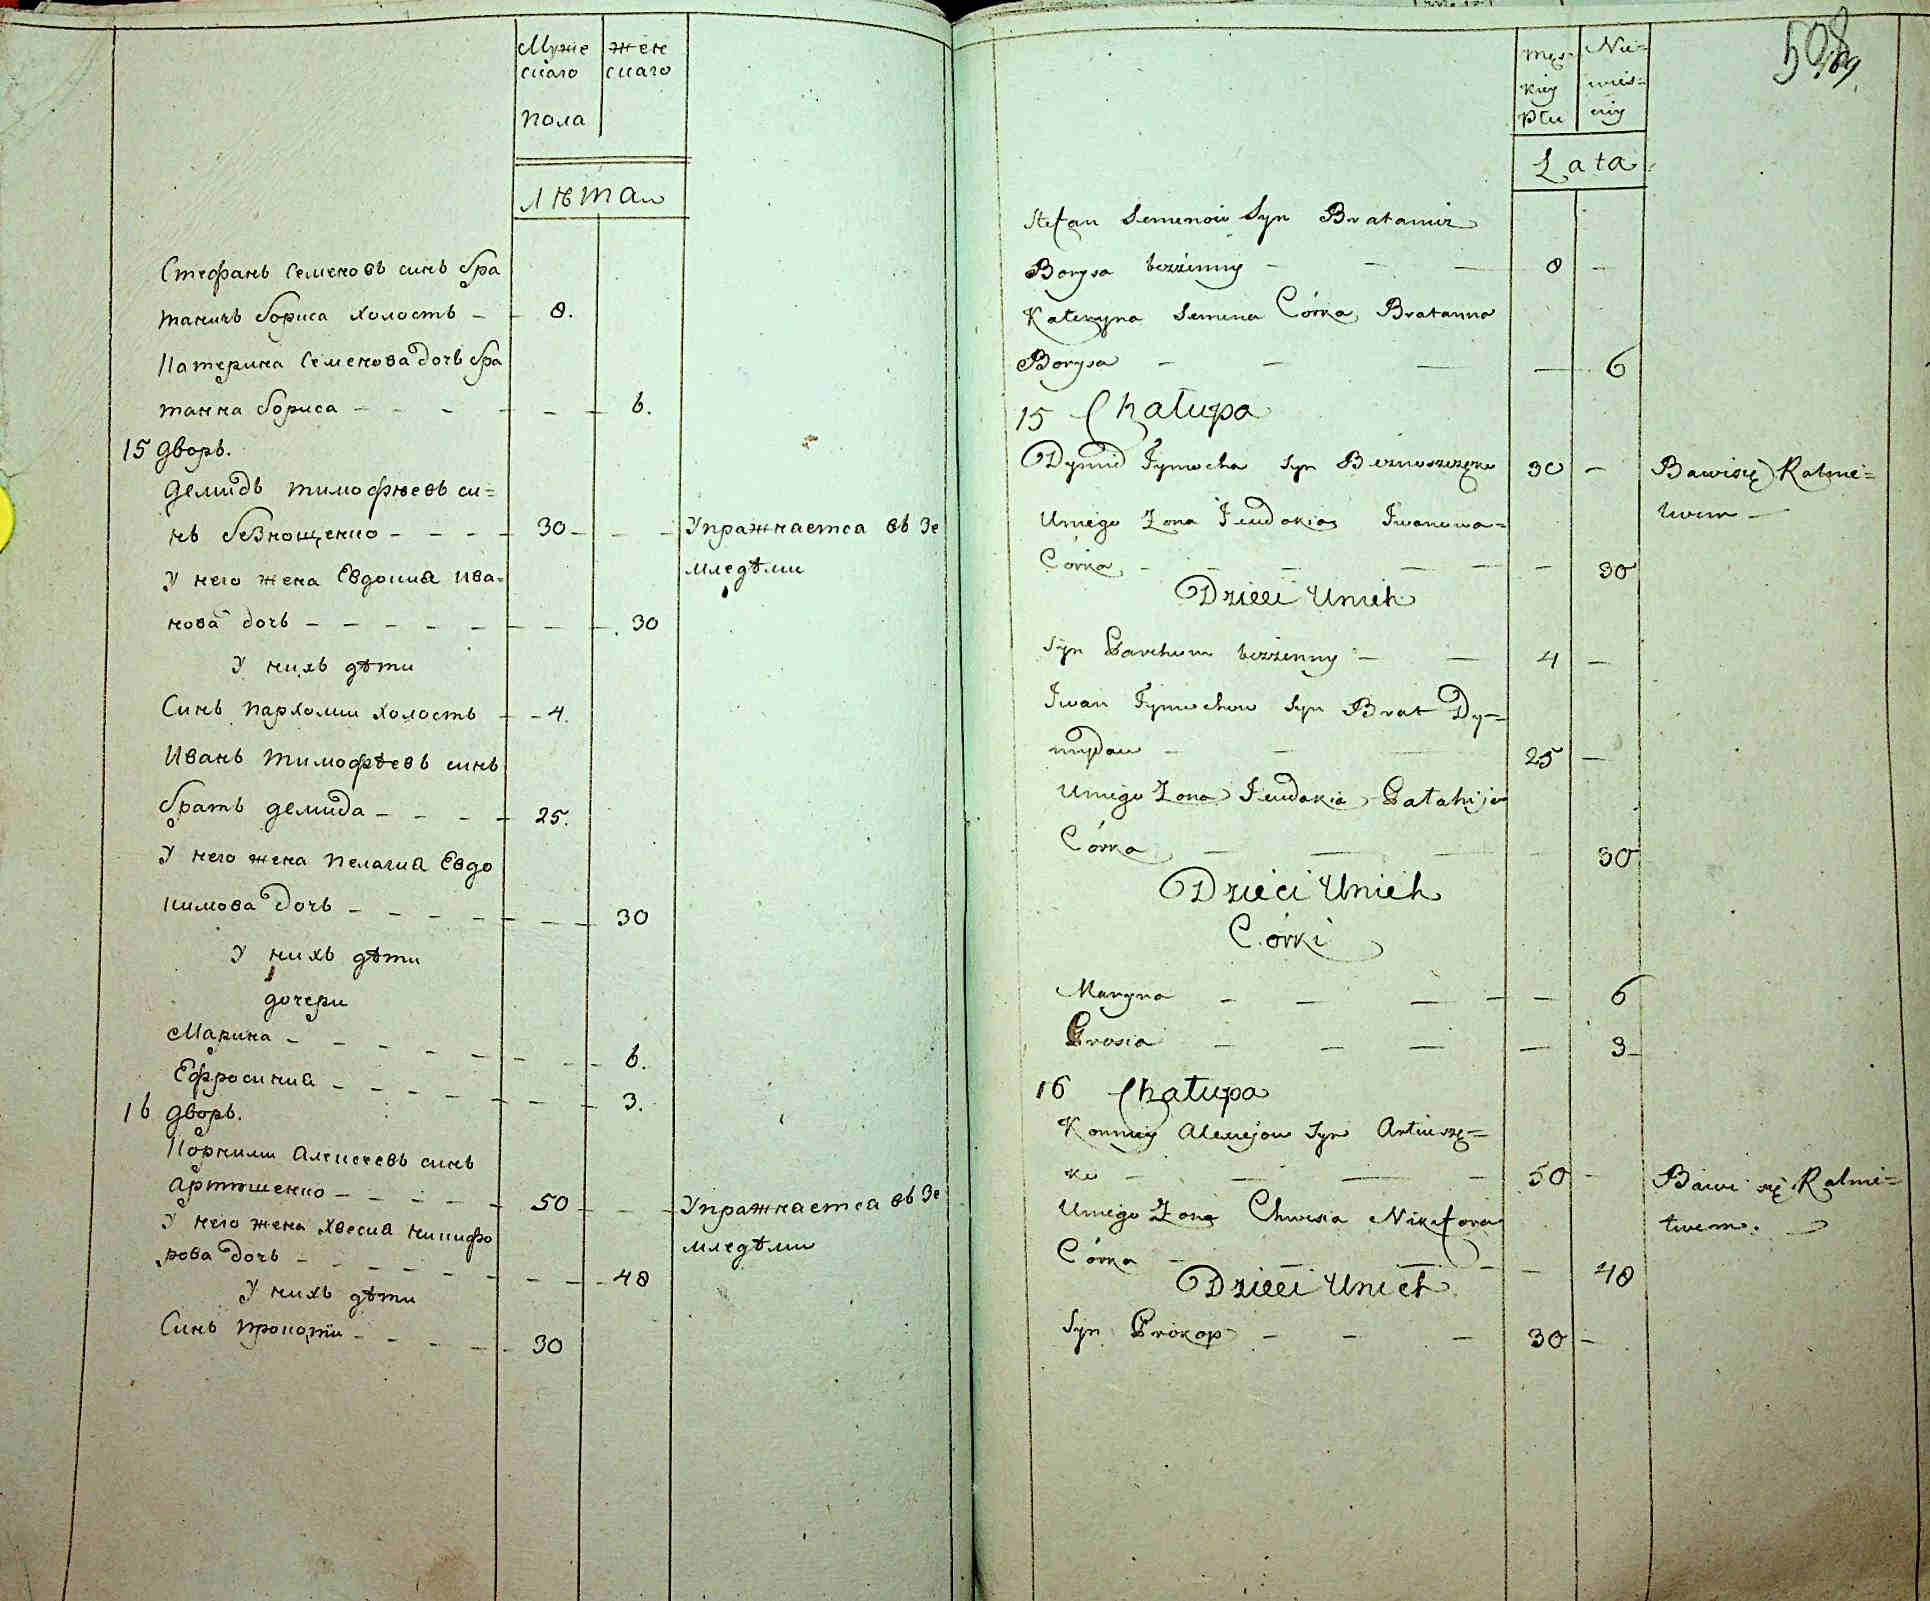 Муже жен
скаго скаго
пола
Лѣта
Стефанъ Семеновъ синъ бра
таничъ бориса холостъ - - 8.
Катерина Семенова дочь бра
танна бориса - - - - - - 6.
15 дворъ.
Демидъ тимофѣевъ си=
нъ безнощенко - - - - 30 - - - Упражнаетса въ зе
мледѣли
У него жена Евдокиа ива=
нова дочь - - - - - - - - 30
У нихъ дѣти
Синъ пархоми холостъ - - 4.
Иванъ тимофѣевъ синъ
братъ демида - - - - 25.
У него жена пелагиа Евдо
кимова дочь - - - - - - - - 30
У нихъ дѣти
дочери
Марина - - - - - - - - 6.
Ефросиниа - - - - - - - 3.
16 дворъ.
Корнили алексеевъ синъ
артюшенко - - - - - 50 - - - Упражнаетса въ зе
мледѣли
У него жена хвесиа никифо
рова дочь - - - - - - - - 48
У нихъ дѣти
Синъ прокопи - - - - - 30
Męs- Nie=
kiey wies=
Płu ciy
Lata
508
Stefan Semenow Syn Bratanicz
Borysa bezżenny - - - 8 -
Kateryna Semena Córka Bratanna
Borysa - - - - 6
15 Chałupa
Dymid Tymocha Syn Beznoszczęko 30 - Bawi się Rolni=
twem -
Uniego Żona Jewdokia Iwanowa=
Córka - - - - - - 30
Dzieci Unich
Syn Parchum bezżenny - - 4 -
Iwan Tymochow Syn Brat Dy=
mydau - - - 25 -
Uniego Żona Jewdokia Pałahija
Córka - - - - 30
Dzieci Unich
Córki
Maryna - - - - - 6
Prosia - - - - 3 -
16 Chałupa
Korniey Alexiejow Syn Artiuszę=
ko - - - - 50 - Bawi się Rolni=
twem.
Uniego Żona Chwesia Nikifora
Córka - - - - 48
Dzieci Unich
Syn Prokop - - - 30 -